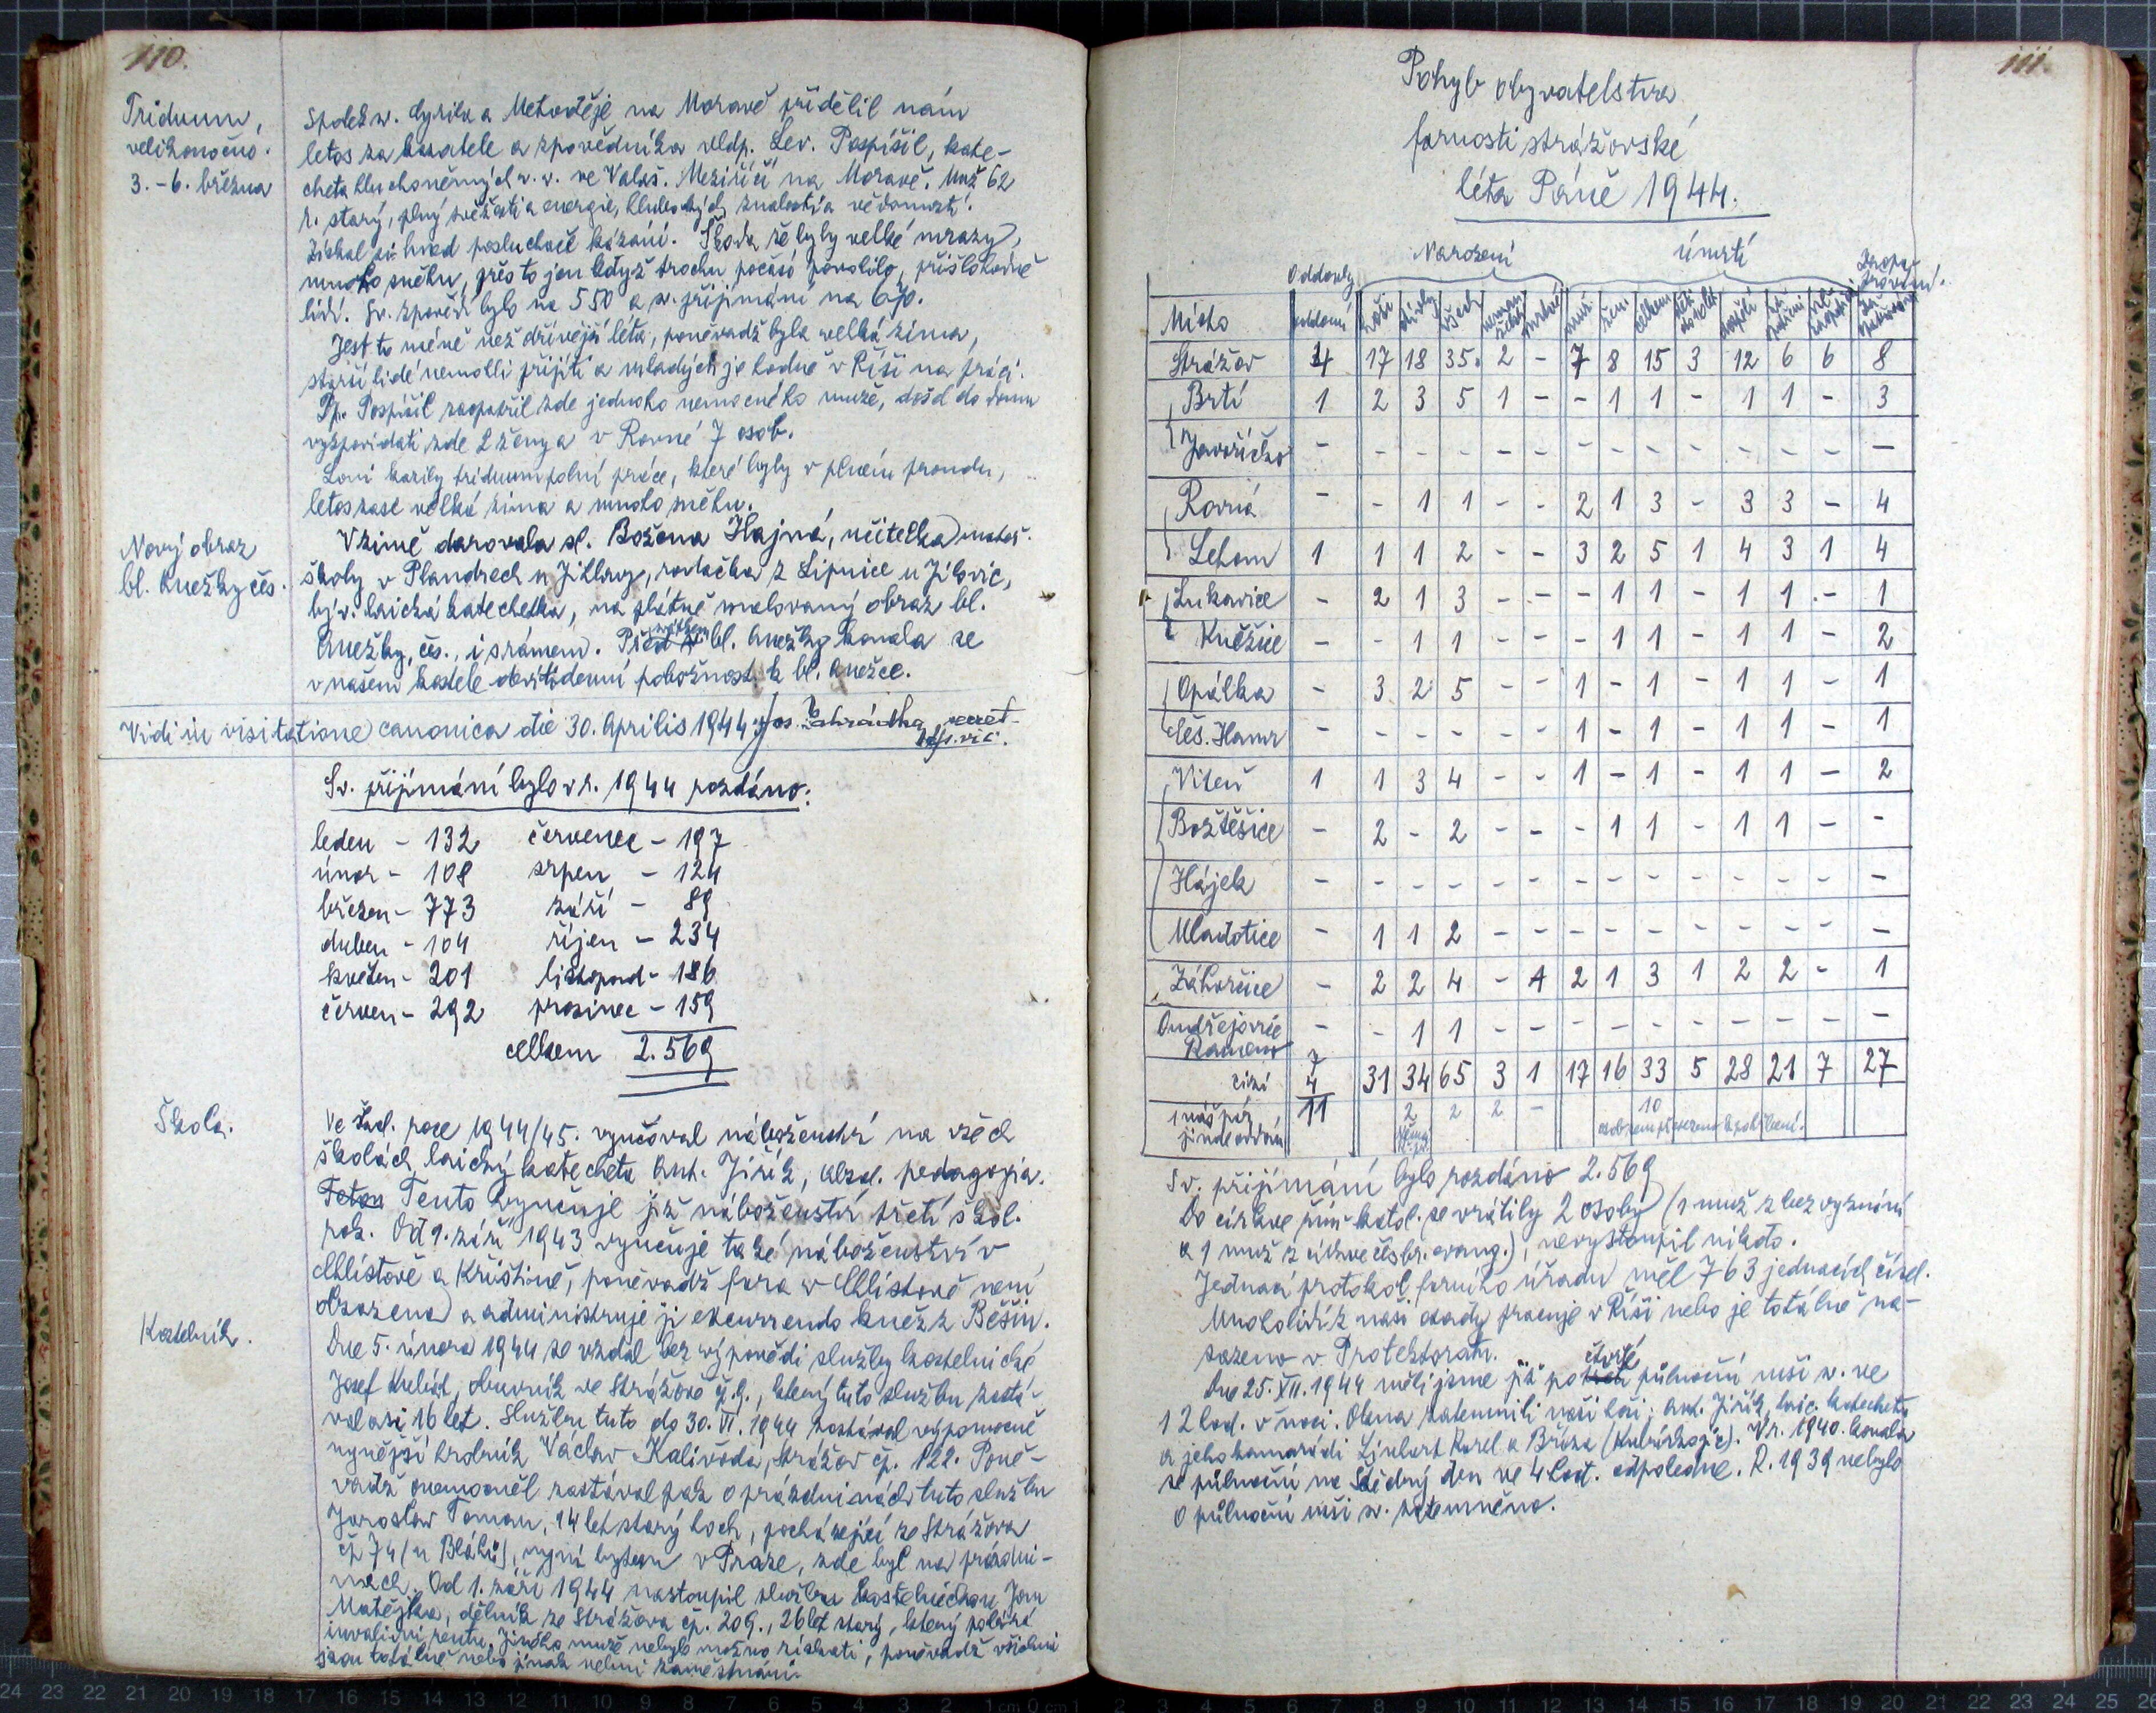 110.
Triduum,
velikonočno.
3.-6. března
Spolek sv. Cyrila a Metoděje na Moravě přidělil nám
letos za kazatele a zpovědníka veldp. Lev. Pospíšil, kate-
cheta hluchoněmých v. v. ve Valaš. Meziříčí na Moravě. Muž 62
r. starý, plný svěžesti a energie, hlubokých znalostí a vědomostí.
Získal si hned posluchače kázání. Škoda že byly velké mrazy,
mnoho sněhu, přes to jen když trochu počasí povolilo, přišlo hodně
lidí. Sv. zpovědí bylo na 550 a sv. přijímání na 670.
Jest to méně než dřívější léta, poněvadž byla velká zima,
starší lidé nemohli přijíti a mladých je hodně v Říši na práci.
Dp. Pospíšil zaopatřil zde jednoho nemocného muže, došel do domu
vyzpovídati zde 2 ženy a v Rovné 7 osob.
Loni kazily triduum polní práce, které byly v plném proudu,
letos zase velká zima a mnoho sněhu.
Nový obraz
bl. Anežky čes.
V zimě darovala sl. Božena Hajná, učitelka mateř.
školy v Plandrech u Jihlavy, rodačka z Lipnice u Jílovic,
býv. laická katechetka, na plátně malovaný obraz bl.
Anežky, čes., i s rámem. Před svátkem bl. Anežky konala se
v našem kostele devítidenní pobožnost k bl. Anežce.
Vidi in visitatione canonica die 30. Aprilis 1944 Jos. Zahrádka, secret.
bisk. vic.
Sv. přijímání bylo v r. 1944 rozdáno:
leden - 132 červenec - 197
únor - 108 srpen - 124
březen - 773 září - 89
duben - 104 říjen - 234
květen - 201 listopad - 186
červen - 292 prosinec - 159
celkem 2.569
Škola.
Ve škol. roce 1944/45. vyučoval náboženství na všech
školách laický katecheta Ant. Jiřík, absol. pedagogia.
Tento vyučuje již náboženství třetí škol.
rok. Od 1. září 1943 vyučuje také náboženství v
Chlistově a Křištíně, poněvadž fara v Chlistově není
obsazena a administruje ji excurrendo kněz z Běšin.
Kostelník.
Dne 5. února 1944 se vzdal bez výpovědi služby kostelnické
Josef Kubát, obuvník ve Strážově č. 9., který tuto službu zastá-
val asi 16 let. Službu tuto do 30. VI. 1944 zastával výpomocně
nynější hrobník Václav Kalivoda, Strážov čp. 122. Poně-
vadž onemocněl zastával pak o prázdninách tuto službu
Jaroslav Toman, 14 let starý hoch, pocházející ze Strážova
čp 74 (u Bláhů), nyní bytem v Praze, zde byl na prázdni-
nách. Od 1. září 1944 nastoupil službu kostelnickou Jan
Matějka, dělník ze Strážova čp. 209., 26 let starý, který pobírá
invalidní rentu. Jiného muže nebylo možno získati, poněvadž všichni
jsou totálně nebo jinak velmi zaměstnáni.
111.
Pohyb obyvatelstva
farnosti strážovské
léta Páně 1944.
Oddavky Narození úmrtí Zaopa-
trování.
Místo oddaní hoši dívky všech neman želští mrtvě muž. žen. celkem děti do 10 let dospělí za opatřeni ne zaopatřeni
Strážov 4 17 18 35. 2 - 7 8 15 3 12 6 6 8
Brtí 1 2 3 5 1 - - 1 1 - 1 1 - 3
Javoříčko - - - - - - - - - - - - - -
Rovná - - 1 1 - - 2 1 3 - 3 3 - 4
Lehom 1 1 1 2 - - 3 2 5 1 4 3 1 4
Lukavice - 2 1 3 - - - 1 1 - 1 1 - 1
Kněžice - - 1 1 - - - 1 1 - 1 1 - 2
Opálka - 3 2 5 - - 1 - 1 - 1 1 - 1
Češ. Hamr - - - - - - 1 - 1 - 1 1 - 1
Viteň 1 1 3 4 - - 1 - 1 - 1 1 - 2
Božtěšice - 2 - 2 - - - 1 1 - 1 1 - -
Hájek - - - - - - - - - - - - - -
Mladotice - 1 1 2 - - - - - - - - - -
Záhorčice - 2 2 4 - 1 2 1 3 1 2 2 - 1
Ondřejovic - - 1 1 - - - - - - - - - -
7
cizí 4 31 34 65 3 1 17 16 33 5 28 21 7 27
11
1 náš pár
jinde oddán 2 2 2 - 10
Sv. přijímání bylo rozdáno 2.569
Do církve řím-katol. se vrátily 2 osoby (1 muž z bez vyznání
a 1 muž z církve českobr. evang.), nevystoupil nikdo.
Jednací protokol farního úřadu měl 763 jednacích čísel.
Mnoho lidí z naší osady pracuje v Říši nebo je totálně na-
sazeno v Protektorátu.
Dne 25. XII. 1944 měli jsme již po čtvrté půlnoční mši sv. ve
12 hod. v noci. Okna zatemnili naši hoši: Ant. Jiřík, laic. katecheta
a jeho kamarádi Linhart Karel a Bříza. V r. 1940. konala
se půlnoční na Štědrý den ve 4 hod. odpoledne. R. 1939 nebylo
o půlnoční mši sv. zatemněno.